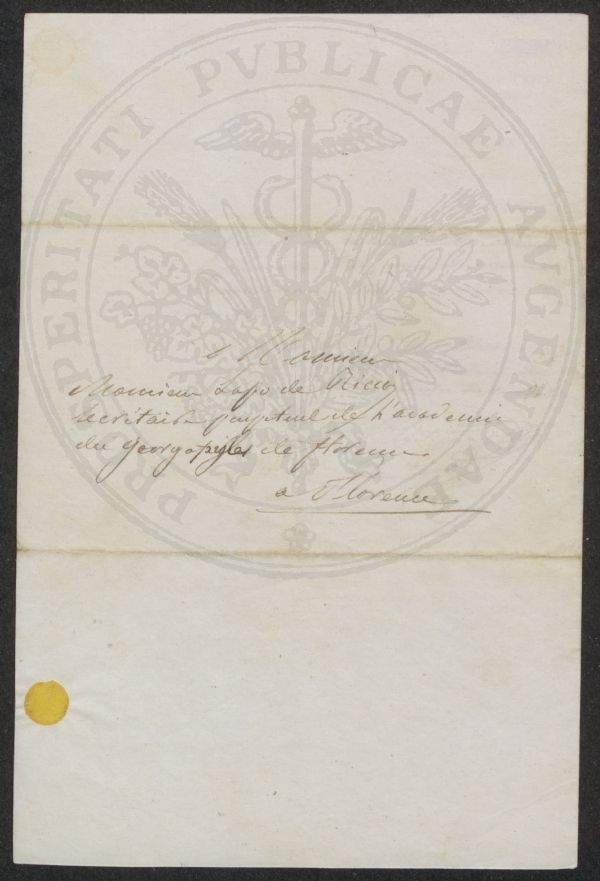 PROSPERITATI PVBLICAE AVGENDAE
a Monsieur
Monsieur Lapo de Ricci
secrétaire perpetuel de l'academie
des georgophiles de florence
a Florence